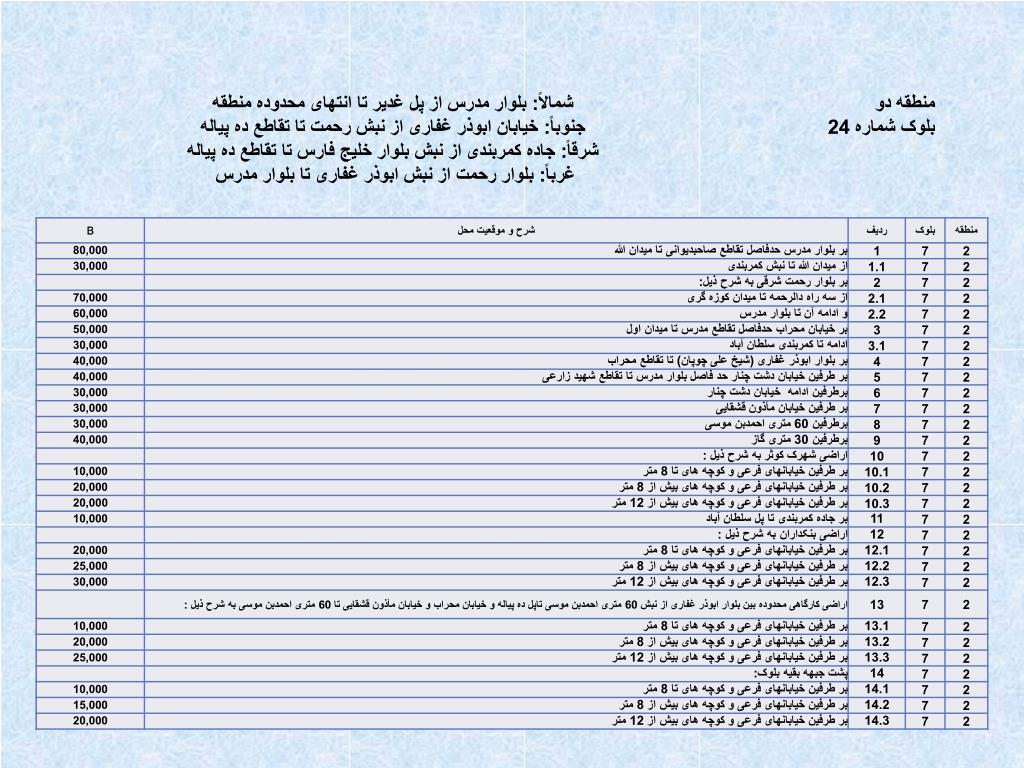 منطقه دو
بلوک شماره 24
شمالاً: بلوار مدرس از پل غدیر تا انتهای محدوده منطقه
جنوباً: خیابان ابوذر غفاری از نبش رحمت تا تقاطع ده پیاله
شرقاً: جاده کمربندی از نبش بلوار خلیج فارس تا تقاطع ده پیاله
غرباً: بلوار رحمت از نبش ابوذر غفاری تا بلوار مدرس
منطقه بلوک ردیف شرح و موقعیت محل B
2 7 1 بر بلوار مدرس حدفاصل تقاطع صاحبدیوانی تا میدان الله 80,000
2 7 1.1 از میدان الله تا نبش کمربندی 30,000
2 7 2 بر بلوار رحمت شرقی به شرح ذیل:
2 7 2.1 از سه راه دالرحمه تا میدان کوزه گری 70,000
2 7 2.2 و ادامه آن تا بلوار مدرس 60,000
2 7 3 بر خیابان محراب حدفاصل تقاطع مدرس تا میدان اول 50,000
2 7 3.1 ادامه تا کمربندی سلطان آباد 30,000
2 7 4 بر بلوار ابوذر غفاری (شیخ علی چوپان) تا تقاطع محراب 40,000
2 7 5 بر طرفین خیابان دشت چنار حد فاصل بلوار مدرس تا تقاطع شهید زارعی 40,000
2 7 6 برطرفین ادامه خیابان دشت چنار 30,000
2 7 7 بر طرفین خیابان مأذون قشقایی 30,000
2 7 8 برطرفین 60 متری احمدبن موسی 30,000
2 7 9 برطرفین 30 متری گاز 40,000
2 7 10 اراضی شهرک کوثر به شرح ذیل :
2 7 10.1 بر طرفین خیابانهای فرعی و کوچه های تا 8 متر 10,000
2 7 10.2 بر طرفین خیابانهای فرعی و کوچه های بیش از 8 متر 20,000
2 7 10.3 بر طرفین خیابانهای فرعی و کوچه های بیش از 12 متر 20,000
2 7 11 بر جاده کمربندی تا پل سلطان آباد 10,000
2 7 12 اراضی بنکداران به شرح ذیل :
2 7 12.1 بر طرفین خیابانهای فرعی و کوچه های تا 8 متر 20,000
2 7 12.2 بر طرفین خیابانهای فرعی و کوچه های بیش از 8 متر 25,000
2 7 12.3 بر طرفین خیابانهای فرعی و کوچه های بیش از 12 متر 30,000
2 7 13 اراضی کارگاهی محدوده بین بلوار ابوذر غفاری از نبش 60 متری احمدبن موسی تاپل ده پیاله و خیابان محراب و خیابان مأذون قشقایی تا 60 متری احمدبن موسی به شرح ذیل :
2 7 13.1 بر طرفین خیابانهای فرعی و کوچه های تا 8 متر 10,000
2 7 13.2 بر طرفین خیابانهای فرعی و کوچه های بیش از 8 متر 20,000
2 7 13.3 بر طرفین خیابانهای فرعی و کوچه های بیش از 12 متر 25,000
2 7 14 پشت جبهه بقیه بلوک:
2 7 14.1 بر طرفین خیابانهای فرعی و کوچه های تا 8 متر 10,000
2 7 14.2 بر طرفین خیابانهای فرعی و کوچه های بیش از 8 متر 15,000
2 7 14.3 بر طرفین خیابانهای فرعی و کوچه های بیش از 12 متر 20,000